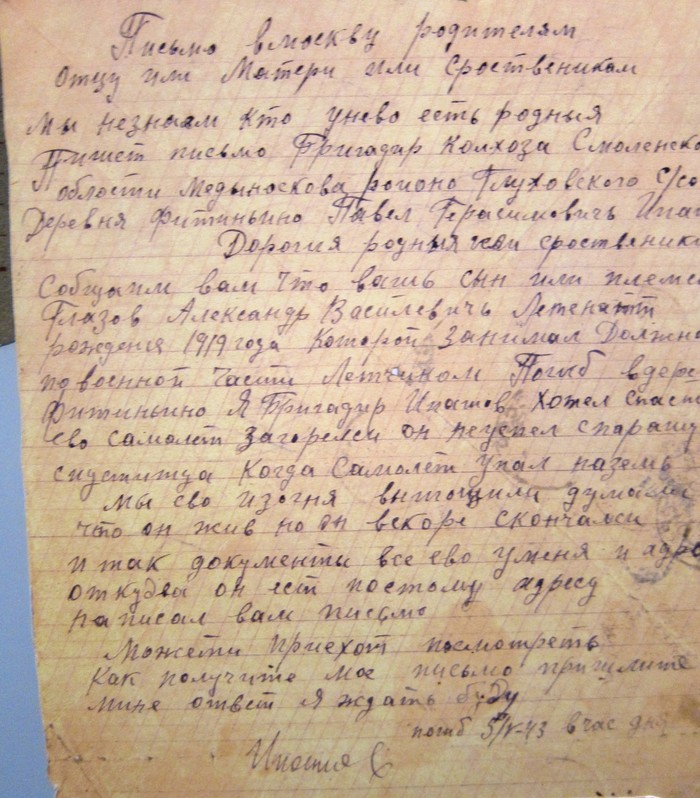 Письмо вмоскву родителям
отцу или Матери или сроственикам
мы незнаем кто унево есть родныя
Пишет письмо Бригадар Колхоза Смоленско
области Медыноскова роиона Глуховского с/со
Деревня Фитиньино Павел Герасимовичь Ипат
Дорогия родныя или сроственики
Собщаим вам что вашь сын или племе
Глазов Александр Василевичь Летенант
рождения 1919 года Которой Занимал Должно
по военной части Летчиком Погиб вдере
Фитиньино Я Бригадир Ипатов Хотел спаст
ево самолет Загорелси он неуспел спарашу
спуститца Когда Самолет упал наземь
мы ево изогня вытощили думали
что он жив но он вскоре скончалси
итак документы все ево уменя и адре
откудва он ест постому адресу
написал вам письмо
Можети приехот посмотреть
Как получите мое письмо пришлите
мине ответ я ждать буду
погиб 5/V-43 в час дня